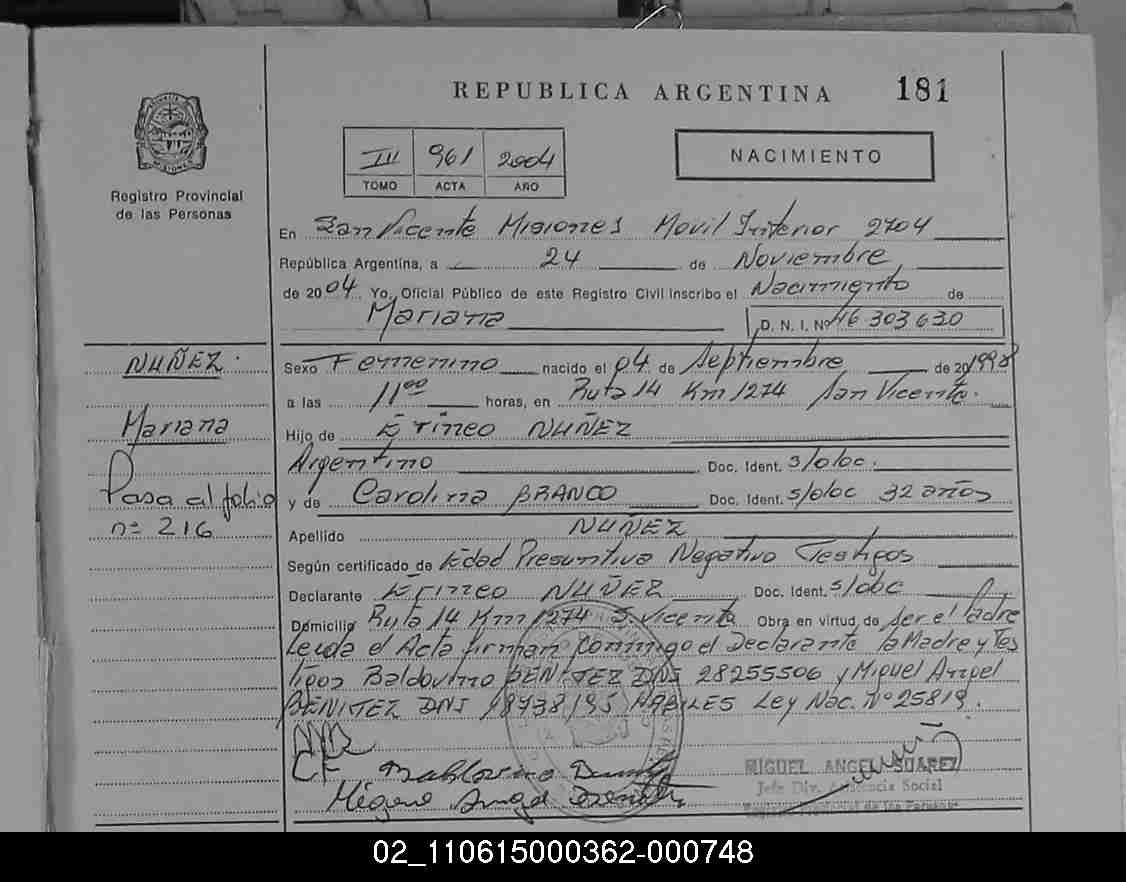 REPUBLICA ARGENTINA 181
III 961 2004
TOMO ACTA AÑO
NACIMIENTO
Registro Provincial
de las Personas
En San Vicente Misiones Movil Interior 2704
República Argentina, a 24 de Noviembre
de 2004 Yo, Oficial Público de este Registro Civil inscribo el Nacimiento de
Mariana D. N. I. Nº 46 303 630
NUÑEZ.
Sexo Femenino nacido el 04 de Septiembre de 20 1998
a las 11⁰⁰ horas, en Ruta 14 Km 1274 San Vicente.
Mariana
Hijo de NUÑEZ
Argentino Doc. Ident. s/doc.
Pasa al folio
nº 216
y de Carolina BRANCO Doc. Ident. s/doc 32 años
Apellido NUÑEZ
Según certificado de Edad Presuntiva Negativo Testigos
Declarante NUÑEZ Doc. Ident. s/doc
Domicilio Ruta 14 Km 1274 S. Vicente Obra en virtud de ser el Padre
Leida el Acta firman conmigo el Declarante la Madre y Tes
tigos Baldovino BENITEZ DNI 28255506 y Miguel Angel
BENITEZ DNI HABILES Ley Nac. Nº 25819.
MIGUEL ANGEL SUAREZ
Jefe Div. Asistencia Social
Registro Provincial de las Personas
02_110615000362-000748